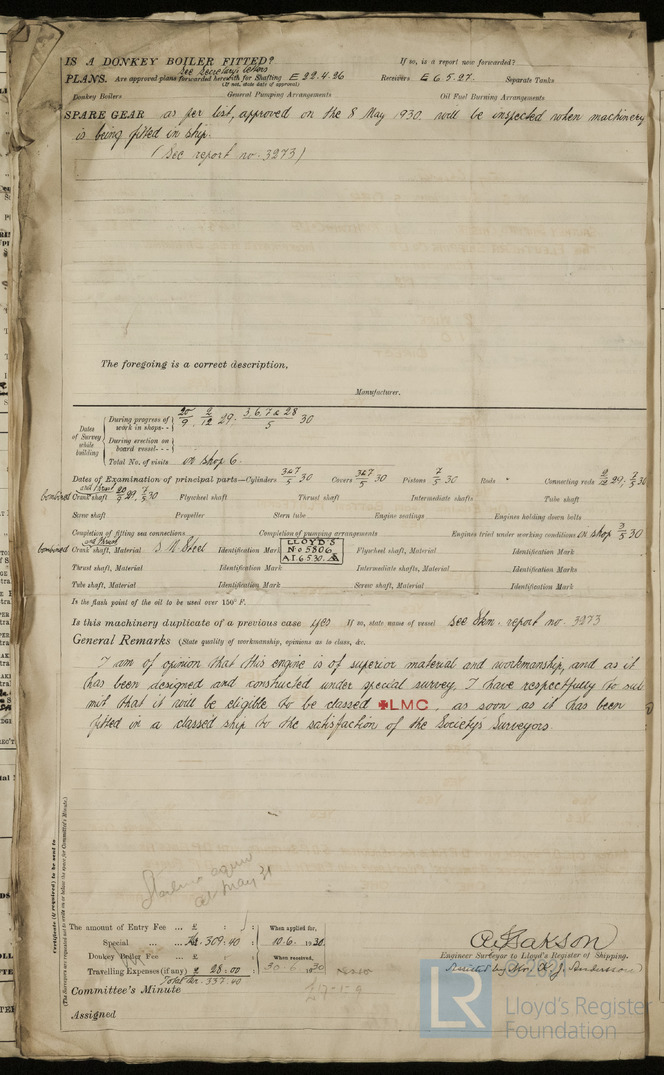 IS A DONKEY BOILER FITTED? If so, is a report now forwarded?
See Secretary's letters
PLANS. Are approved plans forwarded herewith for Shafting E 22.4.26 Receivers E 6.5.27. Separate Tanks
(If not, state date of approval)
Donkey Boilers General Pumping Arrangements Oil Fuel Burning Arrangements
SPARE GEAR as per list, approved on the 8 May 1930 will be inspected when machinery
is being fitted in ship.
(See report no. 3273)
The foregoing is a correct description,
Manufacturer.
Dates of Survey while building
During progress of work in shops-- 20/9. 2/12 29. 3.6.7 & 28/5 30
During erection on board vessel---
Total No. of visits on shop 6.
Dates of Examination of principal parts—Cylinders 3&7/5 30 Covers 3&7/5 30 Pistons 7/5 30 Rods " Connecting rods 2/12 29; 7/5 30
combined Crank shaft and Thrust 20/9 29, 7/5 30 Flywheel shaft Thrust shaft Intermediate shafts Tube shaft
Screw shaft Propeller Stern tube Engine seatings Engines holding down bolts
Completion of fitting sea connections Completion of pumping arrangements Engines tried under working conditions IN shop 3/5 30
combined Crank and Thrust shaft, Material S.M. Steel Identification Mark LLOYD'S No 5806 AI.6.5.30. Flywheel shaft, Material Identification Mark
Thrust shaft, Material Identification Mark Intermediate shafts, Material Identification Marks
Tube shaft, Material Identification Mark Screw shaft, Material Identification Mark
Is the flash point of the oil to be used over 150° F.
Is this machinery duplicate of a previous case yes If so, state name of vessel see Skn. report no. 3273
General Remarks (State quality of workmanship, opinions as to class, &c.
I am of opinion that this engine is of superior material and workmanship, and as it
has been designed and constructed under special survey, I have respectfully to sub
mit that it will be eligible to be classed ✠LMC, as soon as it has been
fitted in a classed ship to the satisfaction of the Society's Surveyors.
Certificate (if required) to be sent to
(The Surveyors are requested not to write on or below the space for Committee's Minute.)
The amount of Entry Fee ... £ : : When applied for,
Special ... Kr. 309:40 : 10.6. 1930.
Donkey Boiler Fee ... £ : : When received,
Travelling Expenses (if any) £ 28:00 : 30.6.1930
Total Kr. 337.40
Engineer Surveyor to Lloyd's Register of Shipping.
Assisted by Mr.
Committee's Minute
Assigned
LR
© 2021
Lloyd's Register
Foundation